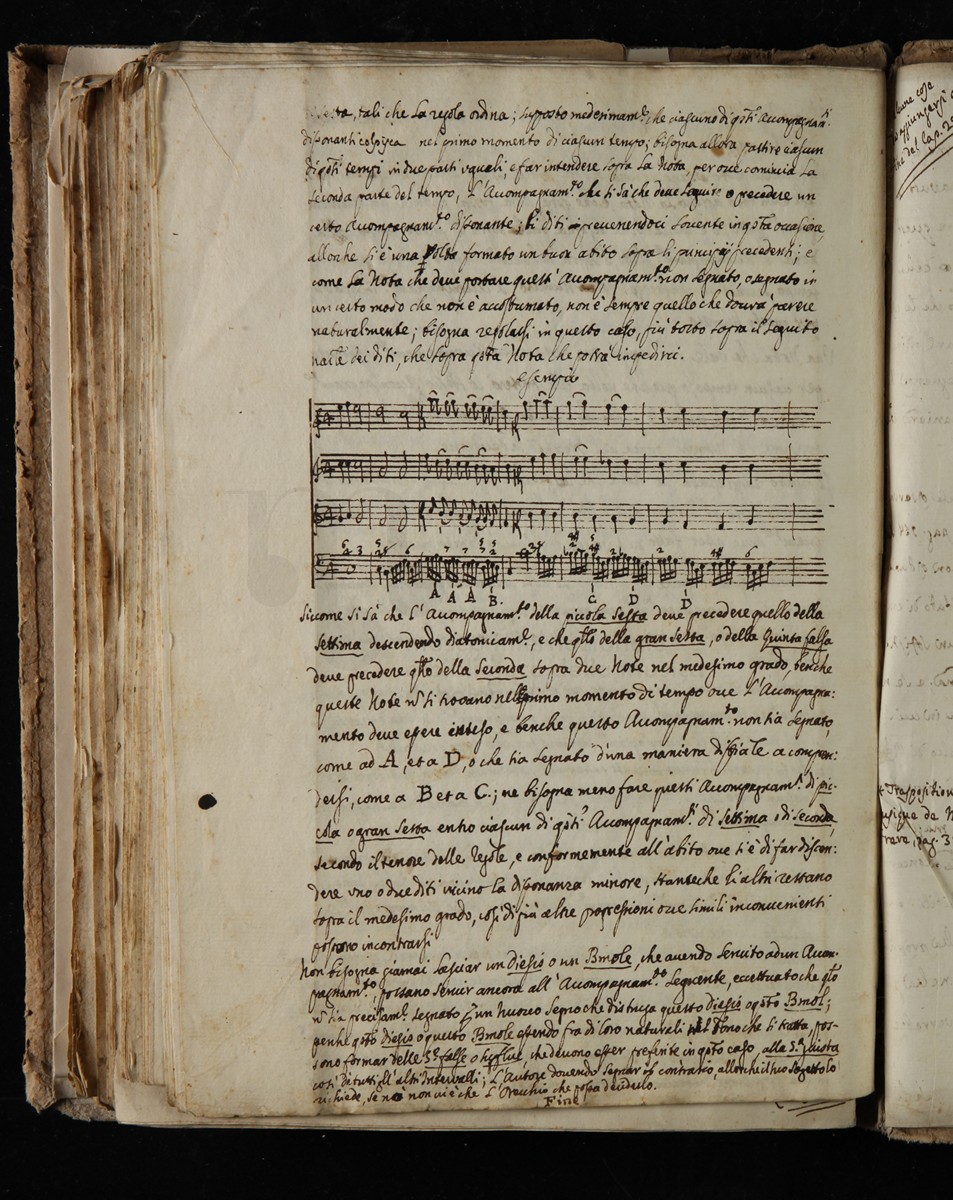 tali che la regola ordina; supposto medesimam.te che ciascuno di q.sti Accompagnam.ti
dissonanti colpisca nel primo momento di ciascun tempo; bisogna allora partire ciascun
di q.sti tempi in due parti uguali, e far intendere sopra la Nota, per oue comincia la
seconda parte del tempo, l'Accompagnam.to che si sà che deve seguire o precedere un
certo Accompagnam.to dissonante; li diti prevenendoci sovente in q.sta occasione,
allorche si è una volta formato un buon abito sopra li principij precedenti; e
come la Nota che deve portare questi Accompagnam.ti non segnato, o segnato in
un certo modo che non è accostumato, non è sempre quello che dourà parere
naturalmente; bisogna regolarsi in questo caso, più tosto sopra il seguito
dei diti, che sopra q.sta Nota che potrà impedirci.
Esempio
6 4 3 6 7 7 2 4 2 4 6
A A A B. C D D
Siccome si sà che l'Accompagnam.to della piccola Sesta deve precedere quello della
Settima descendendo diatonicam.te, e che q.llo della gran Sesta, o della Quinta falsa
deve precedere q.llo della Seconda sopra due Note nel medesimo grado, benche
queste Note n.n si trovano nel primo momento di tempo oue l'Accompagna:
mento deve essere inteso, e benche questo Accompagnam.to non sia segnato,
come ad A, et a D, o che sia segnato d'una maniera difficile a compren:
dersi, come a B et a C.; ne bisogna meno fare questi Accompagnam.ti di pic:
cola o gran Sesta entro ciascun di q.sti Accompagnam.ti di Settima o di Seconda,
secondo il tenore delle regole, e conformemente all'abito oue si è di far discen:
dere uno o due diti vicino la dissonanza minore, stanteche li altri restano
sopra il medesimo grado, così di più altre progressioni oue simili inconvenienti
possono incontrarsi
Non bisogna giamai lasciar un Diesis o un Bmole, che avendo servito ad un Accom:
pagnam.to, possano servir ancora all'Accompagnam.to seguente, eccettuato che q.llo
n.n sia precisam.te segnato p un nuovo segno che distruga questo Diesis o q.sto Bmol;
perche q.sto Diesis o questo Bmole essendo fra di loro naturali nel Tono che si tratta, pos-
sono formar delle 5.te false o superflue, che devono esser preferite in q.sto caso, alla 5.ta giusta
così di tutti li altri Intervalli; l'Autore dovendo segnar il contrario, allorche il suo soggetto lo
richiede, se nò non vi è che l'Orecchio che possa deciderlo.
Fine
alcune cose
aggiungersi
del Cap. 2
Trasposition
Musique de
pag. 3